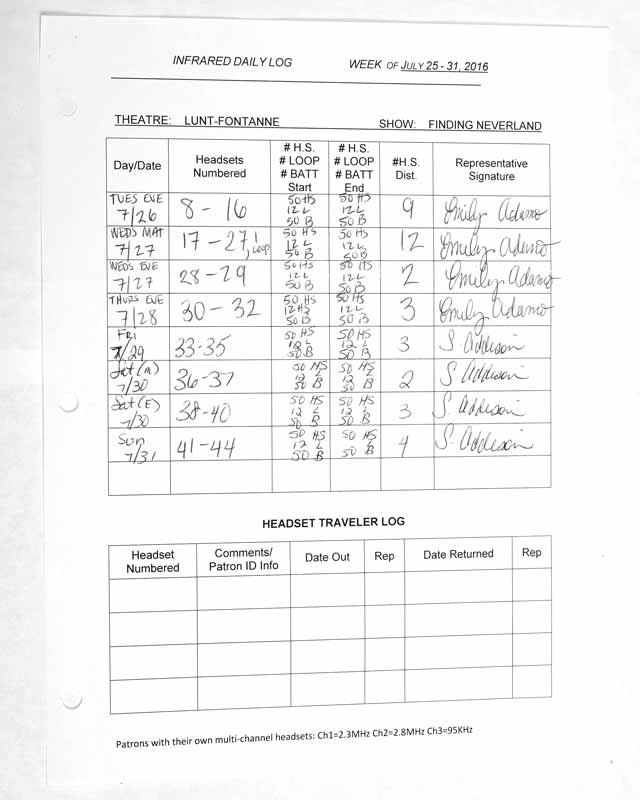 INFRARED DAILY LOG WEEK OF JULY 25 - 31, 2016
THEATRE: LUNT-FONTANNE SHOW: FINDING NEVERLAND
Day/Date Headsets Numbered # H.S. # LOOP # BATT Start # H.S. # LOOP # BATT End #H.S. Dist. Representative Signature
TUES EVE 7/26 8 - 16 50 HS 12 L 50 B 50 HS 12 L 50 B 9 Emily Adamo
WEDS MAT 7/27 17 - 27, 1 LOOP 50 HS 12 L 50 B 50 HS 12 L 50 B 12 Emily Adamo
WEDS EVE 7/27 28 - 29 50 HS 12 L 50 B 50 HS 12 L 50 B 2 Emily Adamo
THURS EVE 7/28 30 - 32 50 HS 50 B 50 HS 12 L 50 B 3 Emily Adamo
Fri 7/29 33-35 50 HS 12 L 50 B 50 HS 12 L 50 B 3 S. Addison
Sat (m) 7/30 36-37 50 HS 12 L 50 B 50 HS 12 L 50 B 2 S. Addison
Sat (E) 7/30 38-40 50 HS 12 L 50 B 50 HS 12 L 50 B 3 S. Addison
Sun 7/31 41-44 50 HS 12 L 50 B 50 HS 12 L 50 B 4 S. Addison
HEADSET TRAVELER LOG
Headset Numbered Comments/ Patron ID Info Date Out Rep Date Returned Rep
Patrons with their own multi-channel headsets: Ch1=2.3MHz Ch2=2.8MHz Ch3=95KHz